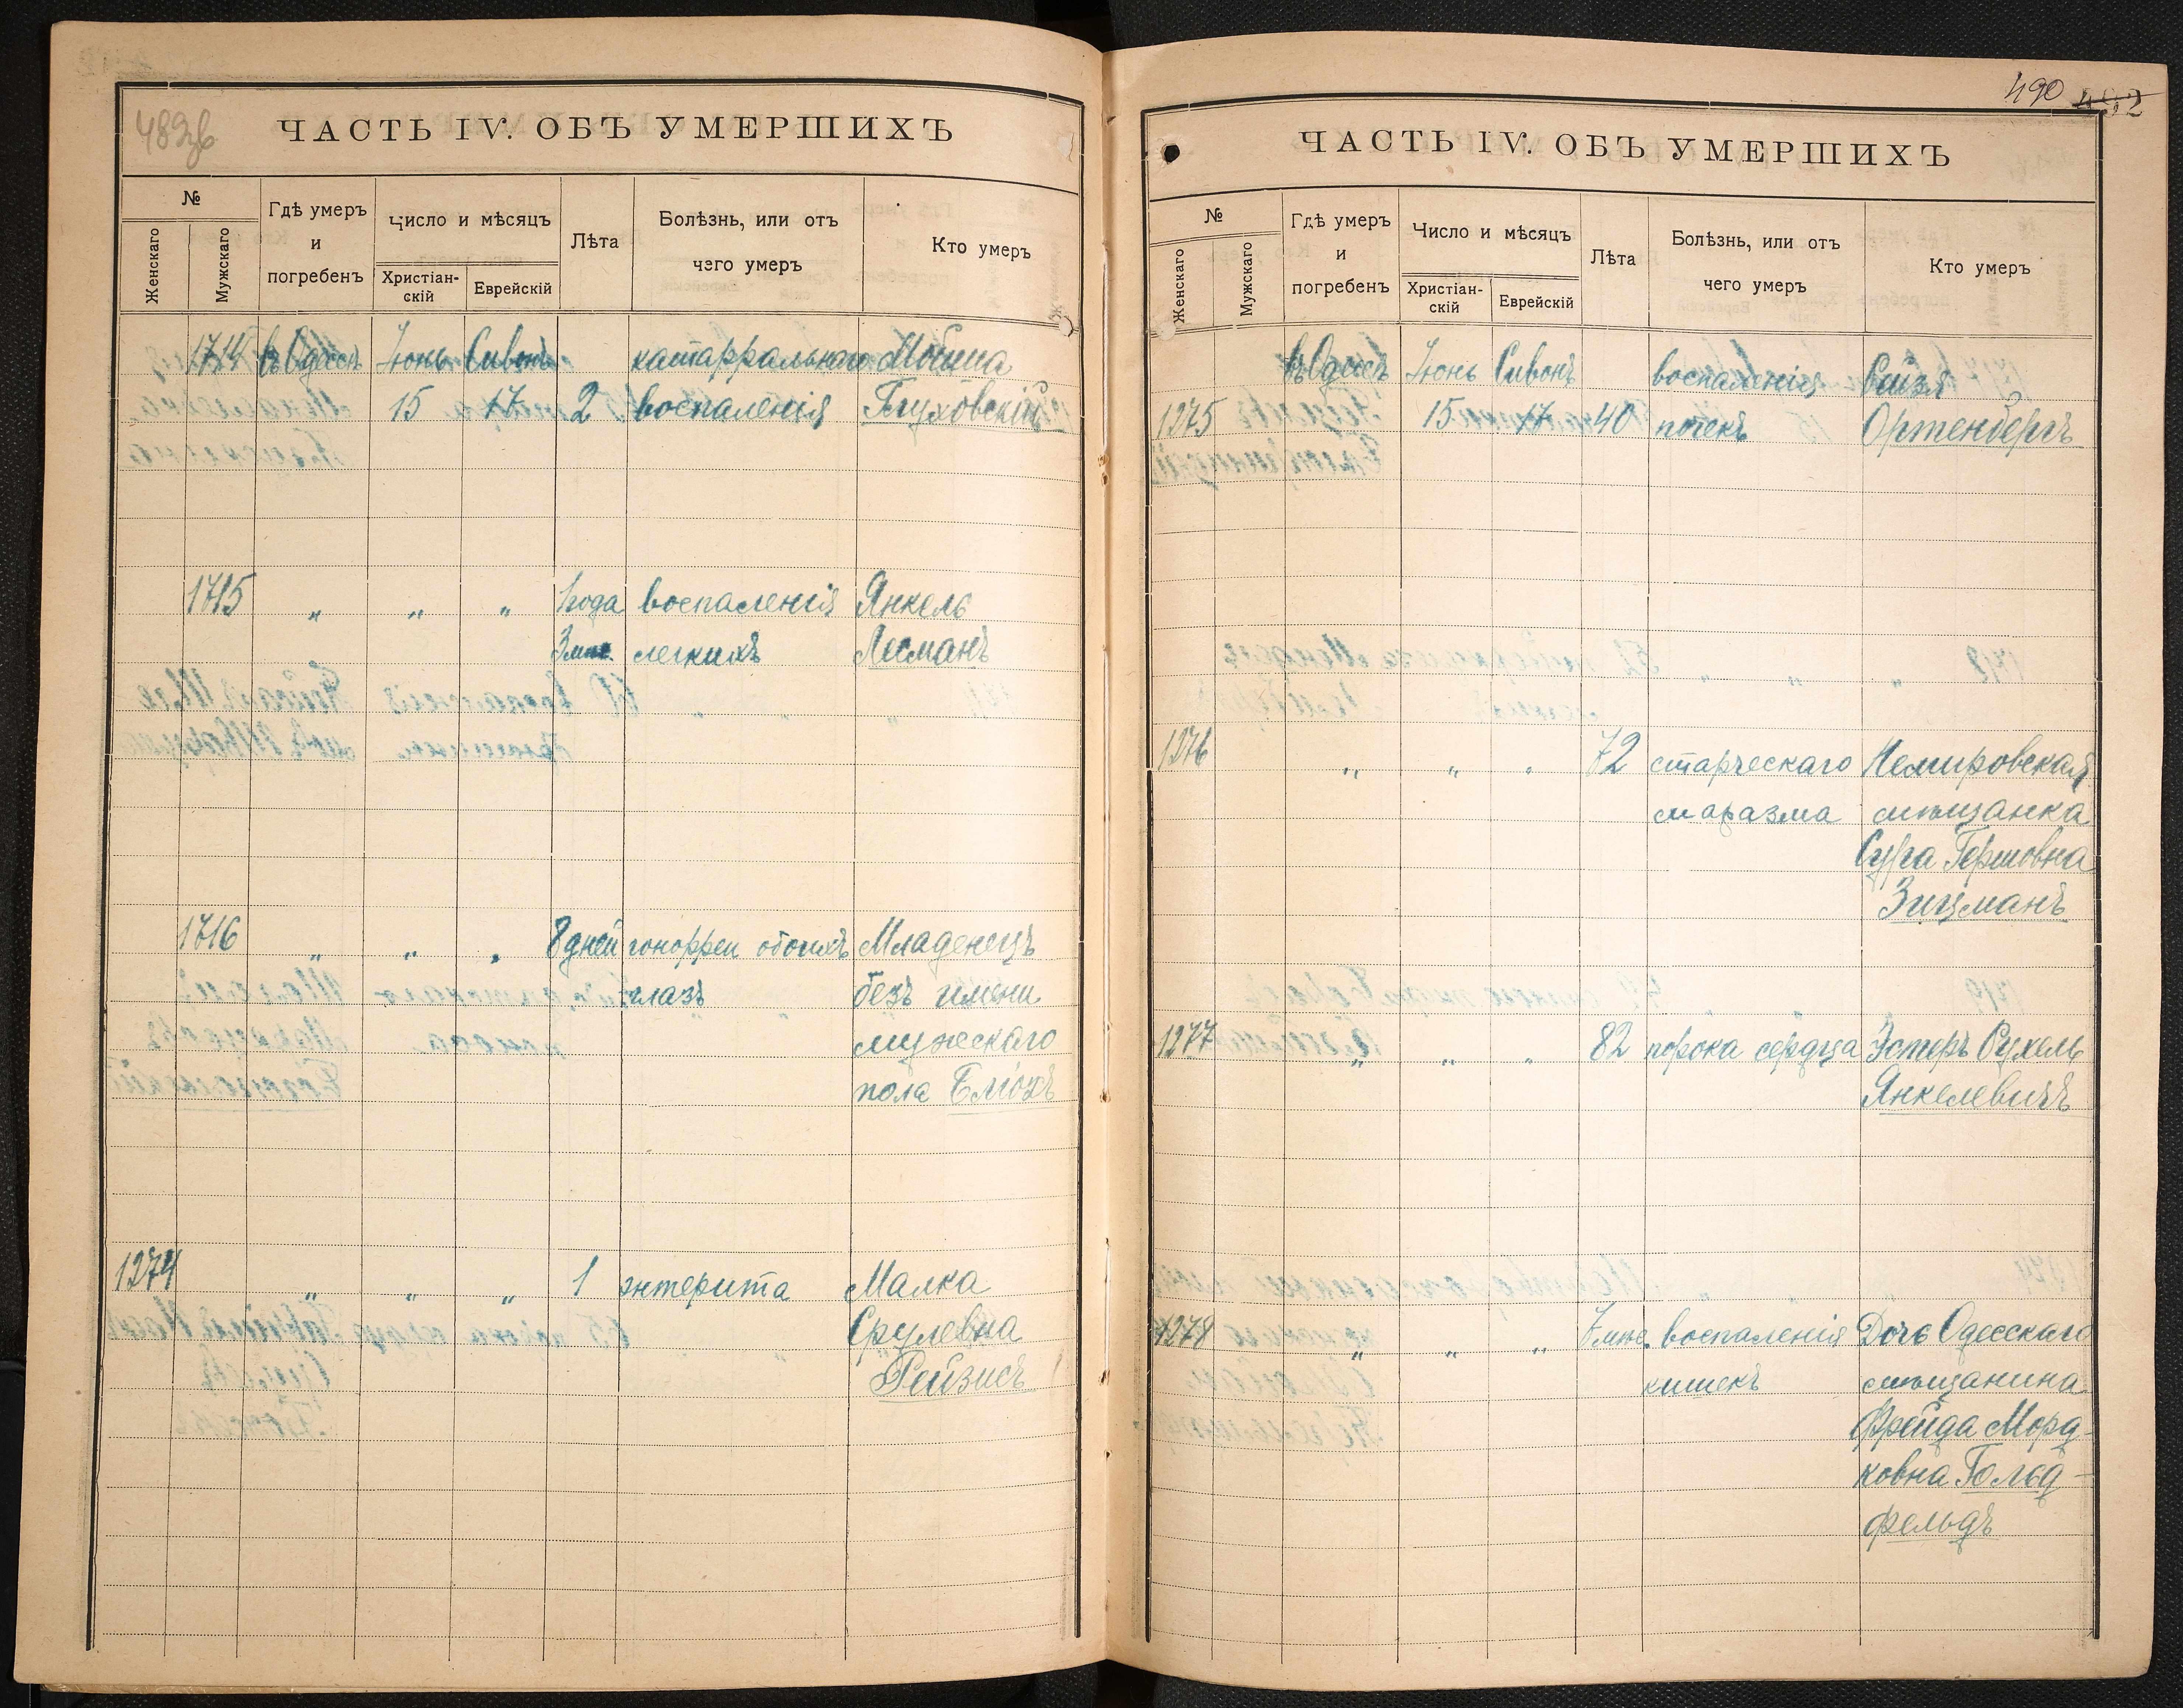 489об
ЧАСТЬ IV. ОБЪ УМЕРШИХЪ
№
Женскаго
Мужскаго
Гдѣ умеръ
и
погребенъ
Число и мѣсяцъ
Христіан-
скій
Еврейскій
Лѣта
Болѣзнь, или отъ
чего умеръ
Кто умеръ
1714 въ Одессѣ Іюнь Сивонъ катарральнаго Мойша
15 17 2 воспаленія Глуховскій
1715 " " " 1 года воспаленія Янкель
3 мѣс. легкихъ Лесманъ
1716 " " " 8 дней гонорреи обоихъ Младенецъ
глазъ безъ имени
мужескаго
пола Блюхъ
1274 " " " 1 энтерита Малка
Срулевна
Рейзисъ
490 492
ЧАСТЬ IV. ОБЪ УМЕРШИХЪ
№
Женскаго
Мужскаго
Гдѣ умеръ
и
погребенъ
Число и мѣсяцъ
Христіан-
скій
Еврейскій
Лѣта
Болѣзнь, или отъ
чего умеръ
Кто умеръ
въ Одессѣ Іюнь Сивонъ воспаленія Рейзя
1275 15 17 40 почекъ Ортенбергъ
1276 " " " 72 старческаго Немировская
маразма мѣщанка
Сура Гершовна
Зицманъ
1277 " " " 82 порока сердца Эстеръ Рухель
Янкелевичъ
1278 " " " 7 мѣс. воспаленія Дочь Одесскаго
кишекъ мѣщанина
Фрейда Морд-
ковна Гольд-
фельдъ